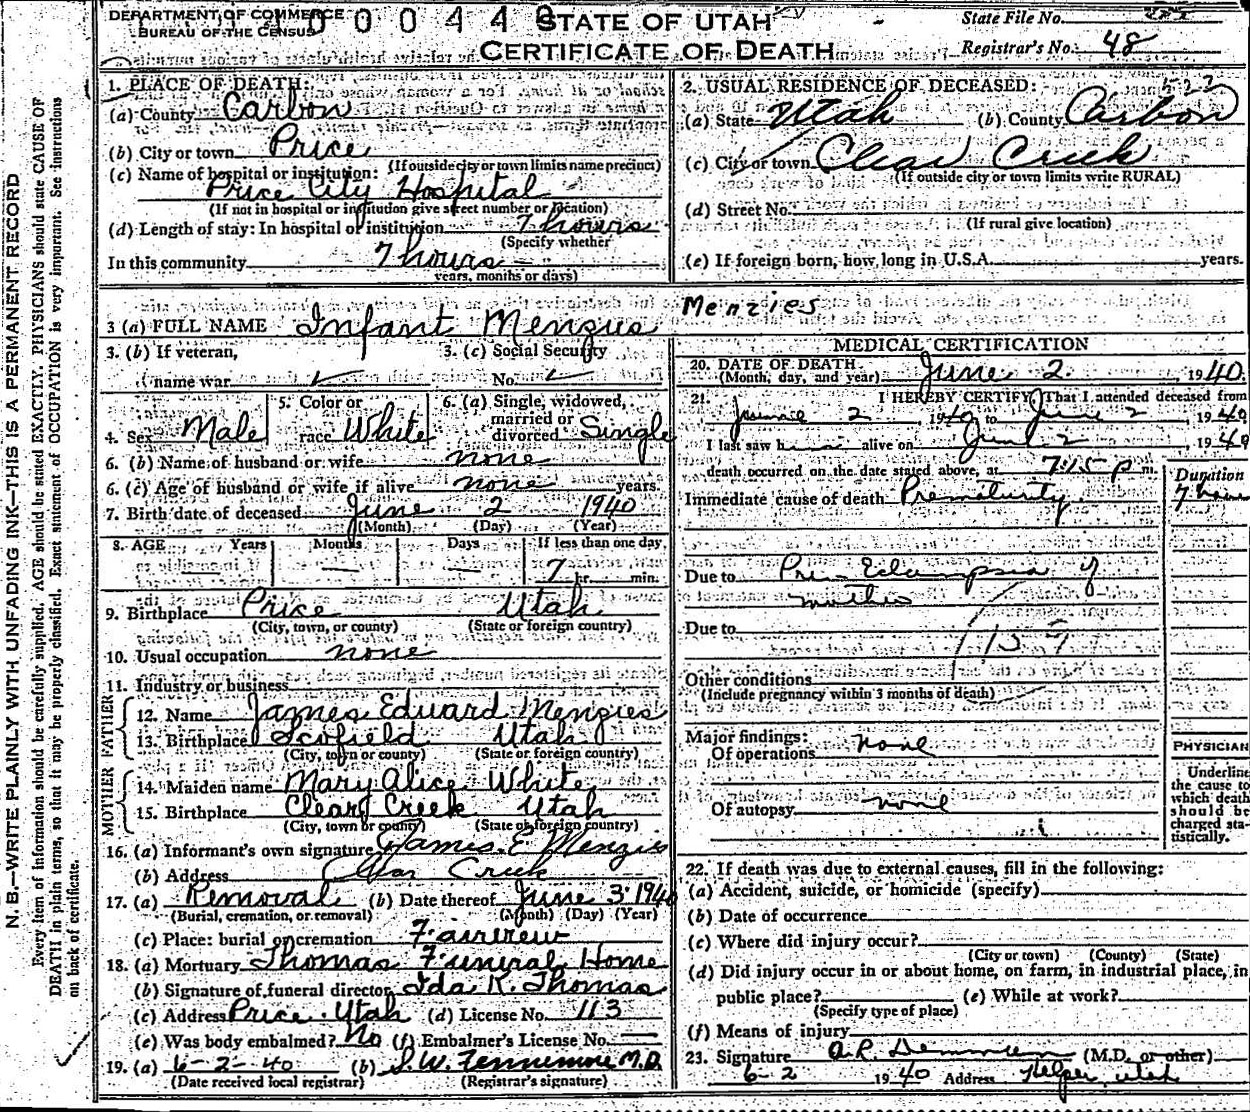 DEPARTMENT OF COMMERCE
BUREAU OF THE CENSUS
STATE OF UTAH
CERTIFICATE OF DEATH
State File No.
Registrar's No. 48
N. B.—WRITE PLAINLY WITH UNFADING INK—THIS IS A PERMANENT RECORD
Every item of information should be carefully supplied. AGE should be stated EXACTLY. PHYSICIANS should state CAUSE OF
DEATH in plain terms, so that it may be properly classified. Exact statement of OCCUPATION is very important. See Instructions
on back of certificate.
1. PLACE OF DEATH:
(a) County Carbon
(b) City or town Price
(If outside city or town limits name precinct)
(c) Name of hospital or institution:
Price City Hospital
(If not in hospital or institution give street number or location)
(d) Length of stay: In hospital or institution 7 hours
(Specify whether
In this community 7 hours
years, months or days)
2. USUAL RESIDENCE OF DECEASED:
(a) State Utah (b) County Carbon
(c) City or town Clear Creek
(If outside city or town limits write RURAL)
(d) Street No.
(If rural give location)
(e) If foreign born, how long in U.S.A. years.
3 (a) FULL NAME Infant Menzies Menzies
3. (b) If veteran,
name war
3. (c) Social Security
No.
4. Sex Male
5. Color or
race White
6. (a) Single, widowed,
married or
divorced Single
6. (b) Name of husband or wife none
6. (c) Age of husband or wife if alive none years.
7. Birth date of deceased June 2 1940
(Month) (Day) (Year)
8. AGE Years Months Days If less than one day
7 hr. min.
9. Birthplace Price Utah
(City, town, or county) (State or foreign country)
10. Usual occupation none
11. Industry or business
FATHER
12. Name James Eduard Menzies
13. Birthplace Scofield Utah
(City, town or county) (State or foreign country)
MOTHER
14. Maiden name Mary Alice White
15. Birthplace Clear Creek Utah
(City, town or county) (State or foreign country)
16. (a) Informant's own signature James E Menzies
(b) Address Clear Creek
17. (a) Removal (b) Date thereof June 3 1940
(Burial, cremation, or removal) (Month) (Day) (Year)
(c) Place: burial or cremation Fairview
18. (a) Mortuary Thomas Funeral Home
(b) Signature of funeral director Ida K. Thomas
(c) Address Price Utah (d) License No. 113
(e) Was body embalmed? No (f) Embalmer's License No.
19. (a) 6-2-40 (b) S.W. Fennemore M.D.
(Date received local registrar) (Registrar's signature)
MEDICAL CERTIFICATION
20. DATE OF DEATH
(Month, day, and year) June 2. , 1940.
21. I HEREBY CERTIFY, That I attended deceased from
June 2, 1940 to June 2, 1940
I last saw him alive on June 2, 1940
death occurred on the date stated above, at 7:15 p m.
Duration
Immediate cause of death Prematurity. 7 hours
Due to Pre-Eclampsia of
mother
Due to
159
Other conditions
(Include pregnancy within 3 months of death)
Major findings:
Of operations none
Of autopsy none
PHYSICIAN
Underline
the cause to
which death
should be
charged sta-
tistically.
22. If death was due to external causes, fill in the following:
(a) Accident, suicide, or homicide (specify)
(b) Date of occurrence
(c) Where did injury occur?
(City or town) (County) (State)
(d) Did injury occur in or about home, on farm, in industrial place, in
public place? (e) While at work?
(Specify type of place)
(f) Means of injury
23. Signature (M.D. or other)
6-2 1940 Address Helper, Utah